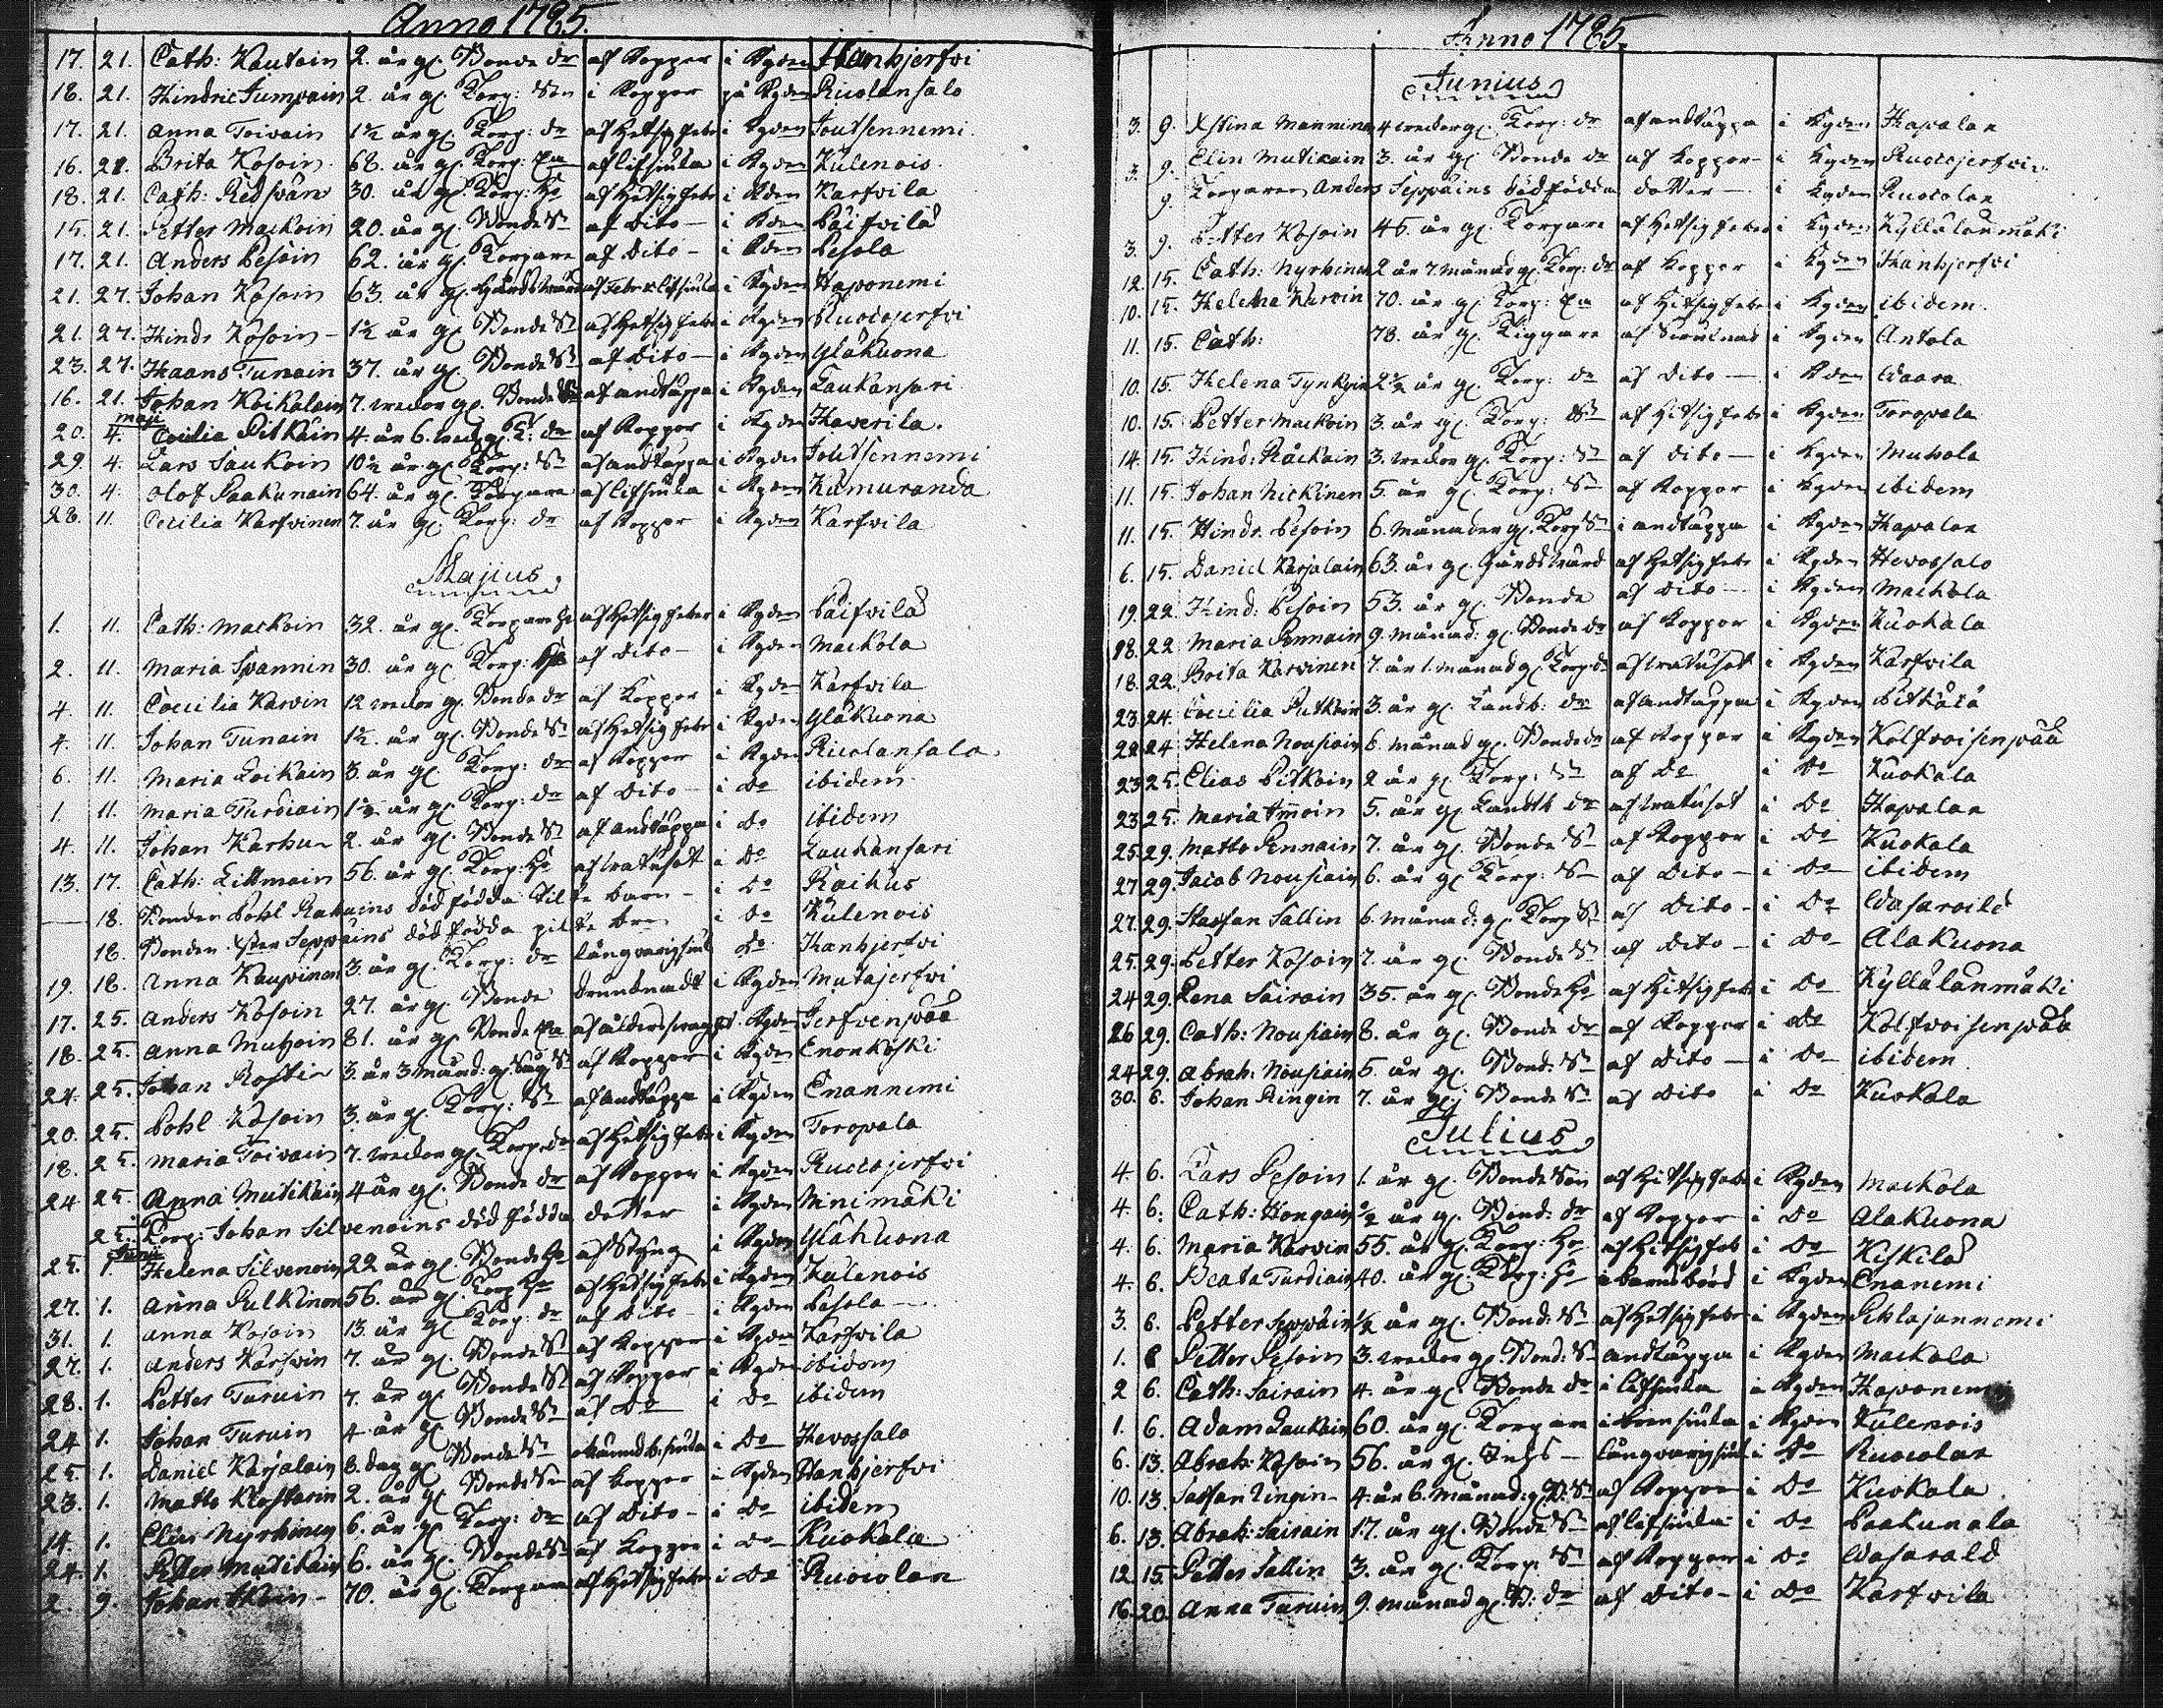 Anno 1785.
17. 21. Cath: Kautain 2. år gl. Bonde dr af Koppor i Kyden Hanhjerfvi
18. 21. Hindric Jumpain 2. år gl. Torp: Son i Koppor på Kyden Ruolansalo
17. 21. Anna Toivain 1½ år gl. Torp: dr af Hetsig feber i Kyden Joutsennemi
16. 21. Brita Kosoin 68. år gl. Torp: Ea af lifsiuka i Kyden Kulenois
18. 21. Cath: Redsvän 30. år gl. Torp: Ho af Hetsig feber i Kden Karfvila
15. 21. Petter Mackoin 20. år gl. Bonde Sn af Dito i Kden Päifvilä
17. 21. Anders Pesoin 62. år gl. Torpare af Dito i Kden Pesola
21. 27. Johan Kosoin 63. år gl. af lifsiuka i Kyden Haponemi
21. 27. Hindr Kosoin 1½ år gl. Bonde Sn af Hetsig feber i Kyden Ruocojerfvi
23. 27. Haans Tunain 37. år gl. Bonde Sn af Dito i Kyden Yläkuona
16. 21. Johan Koikalain 7. weckor gl. Bonde Sn af andtäppa i Kyden Laukansari
maji
20. 4. Cecilia Pitkäin 4. år 6. weck gl. T: dr af Koppor i Kyden Haverila
29. 4. Lars Saukoin 10½ år gl. Torp: Sn af andtäppa i Kyden Joutsennemi
30. 4. Olof Paakunain 64. år gl. Torpare af lifsiuka i Kyden Kumuranda
28. 11. Cecilia Karfvinen 7. år gl. Torp: dr af Koppor i Kyden Karfvila
Majius
1. 11. Cath: Mackoin 32. år gl. Torpare Ho af Hetsig feber i Kyden Päifvilä
2. 11. Maria Spannin 30. år gl. Torp: Ho af Dito i Kyden Mackola
4. 11. Coecilia Karvin 12 weckor gl. Bonde dr af Koppor i Kyden Karfvila
4. 11. Johan Tunain 1½. år gl. Bonde Sn af Hetsig feber i Kyden Yläkuona
6. 11. Maria Loikain 3. år gl. Torp: dr af Koppor i Kyden Ruolansalo
1. 11. Maria Turdiain 1½ år gl. Torp: dr af Dito i Do ibidem
4. 11. Johan Karhu 2. år gl. Bonde Sn af andtäppa i Do ibidem
13. 17. Cath: Littmain 56. år gl. Torp: Ho af watusot i Do Laukansari
18. Bonden Pohl Rahuins död födda Pilte barn i Do Raikus
18. Bonden Seppäins död födda pilte brn i Do Kulenois
19. 18. Anna Kaupinen 3. år gl. Torp: dr långvarig siuk Do Hanhjerfvi
17. 25. Anders Kosoin 27. år gl. Bonde Drunknadt i Kyden Mutajerfvi
18. 25. Anna Muhoin 81. år gl. Bonde Ea af ålderdomsvaghet i Kyden Jerfvenpää
24. 25. Johan Rostin 3. år 3 månd: gl. Sn af Koppor i Kyden Enonkoski
20. 25. Pohl Kosoin 3. år gl. Torp: Sn af andtäppa i Kyden Enannemi
18. 25. Maria Toivain 7. weckor gl. Torp: dr af Hetsig feber i Kyden Toropala
24 25. Anna Mutikain 4 år gl. Bonde dr af Koppor i Kyden Ruocojerfvi
25. Torp: Johan Silvenoins död födda dotter i Kyden Minimäki
Junii
25. 1. Helena Silvenoin 22 år gl. Bonde Ho af Styng i Kyden Yläkuona
27. 1. Anna Pulkinen 56. år gl. Torp Ho af Hetsig feber i Kyden Kulenois
31. 1. Anna Kosoin 13. år gl. Torp: dr af Dito i Kyden Pesola
27. 1. Anders Karfvin 7. år gl. Bonde Sn af Koppor i Kyden Karfvila
28. 1. Petter Taruin 7. år gl. Bonde Sn af Koppor i Kyden ibidem
24 1. Johan Taruin 4 år gl Bonde Sn af Do i Do ibidem
25. 1. Daniel Karjalain 8. dag gl. Bonde Sn okiändb: siuka i Do Hevossalo
23. 1. Matts Klostarin 2. år gl Bonde Sn af Koppor i Kyden Hanhjerfvi
14. 1. Elias Nyrhinen 6. år gl. Torp: dr af Dito i Do ibidem
24. 1. Petter Mutikain 6. år gl. Bonde Sn af Koppor i Do Kuokala
2. 9. Johan Ikoin 70. år gl. Torpare af Hetsig feber i Do Ruocolax
Anno 1785.
Junius
3. 9. Xstina Manninen 4 weckor gl. Torp: dr af andtäppa i Kyden Hapalax
3. 9. Elin Mutikain 3. år gl. Bonde dr af Koppor i Kyden Ruocojerfvi
9. Torparen Anders Seppäins död födda dotter i Kyden Ruocolax
3. 9. Petter Kosoin 45. år gl. Torpare af Hetsig feber i Kyden Kyllälänmäki
12. 15. Cath: Nyrhinen 2 år 7. månad gl. Torp: dr af Koppor i Kyden Hanhjerfvi
10. 15. Helena Karvin 70. år gl. Torp: Ea af Hitsig feber i Kyden ibidem
11. 15. Cath: 78. år gl. Tiggare af i Kyden Antola
10. 15. Helena Tynkyin 2½ år gl. Torp: dr af Dito i Kden Waara
10. 15. Petter Mackoin 3. år gl. Torp: Sn af Hitsig feber i Kyden Toropala
14. 15. Hind: Räckoin 3. weckor gl. Torp: Sn af Dito i Kyden Muhola
11. 15. Johan Hickinen 5. år gl. Torp: Sn af Koppor i Kyden ibidem
11. 15. Hindr. Pesoin 6. månader gl. Torp Sn i andtäppa i Kyden Hapalax
6. 15. Daniel Karjalain 63. år gl. af Hetsig feber i Kyden Hevossalo
19. 22. Hind: Pesoin 53. år gl. Bonde af Dito i Kyden Mackola
18. 22. Maria Pennain 9. månad: gl. Bonde dr af Koppor i Kyden Kuokala
18. 22. Brita Karvinen 7. år 1. månad gl Torp dr af watusot i Kyden Karfvila
23 24. Coecilia Putkoin 3. år gl. Landb: dr af andtäppa i Kyden Pitkälä
22 24. Helena Nousiain 6. månad gl. Bonde dr af Koppor i Kyden Kolfvoisenpää
23 25. Elias Pitkoin 2 år gl Torp: Sn af Do i Do Kuokala
23 25. Maria Immoin 5. år gl Landb dr af watusot i Do Hapalax
25. 29. Matts Pennain 7. år gl. Bonde Sn af Koppor i Do Kuokala
27 29. Jacob Nousiain 6. år gl Torp: Sn af Dito i Do ibidem
27. 29. Staffan Sallin 6. månad: gl. Torp Sn af Dito i Do Wasaroilé
25. 29. Petter Kosoin 7. år gl. Bonde Sn af Dito i Do Alakuona
24 29. Lena Sairain 35. år gl. Bonde Ho af Hitsig feb i Do Kyllälänmäki
26 29. Cath: Nousiain 8. år gl. Bonde dr af Koppor i Do Kolfvoisenpää
24 29. Abrah: Nousiain 5. år gl. Bond: Sn af Dito i Do ibidem
30. 6. Johan Ringin 7. år gl. Bonde Sn af Dito i Do Kuokala
Julius
4. 6. Lars Pesoin 1. år gl. Bonde Son af Hitsig feber i Kyden Mackola
4. 6. Cath: Kongain ½ år gl. Bond: dr af Koppor i Do Alakuona
4. 6. Maria Karvin 55. år gl. Torp: Ho af Hitsig feb i Do Kiskilä
4. 6. Beata Turdiain 40. år gl. Torp: Ho i barnsbörd i Kyden Enanemi
3. 6. Petter Seppäin ½ år gl. Bond: Sn af Hetsig feber i Kyden Pehlajannemi
1. 6 Petter Pesoin 3. weckor gl. Bond: Sn andtäppa i Kyden Mackola
2 6. Cath: Sairain 4. år gl. Bonde dr i lifsiuka i Kyden Haponemi
1. 6. Adam Laukain 60. år gl. Torpare i siuka i Kyden Kulenois
6. 13. Abrah: Kosoin 56. år gl. Inhs långvarig siuk i Do Ruocolax
10. 13. Staffan Ringin 4. år 6. månad: gl. B: Sn af Koppor i Do Kuokala
6. 13. Abrah: Sairain 17. år gl. Bonde Sn af lifsiuka i Do Paakunala
12 15. Petter Sallin 3. år gl. Torp: Sn af Koppor i Do Wasarald
16. 20. Anna Taruin 9. månad gl. B: dr af Dito i Do Karfvila